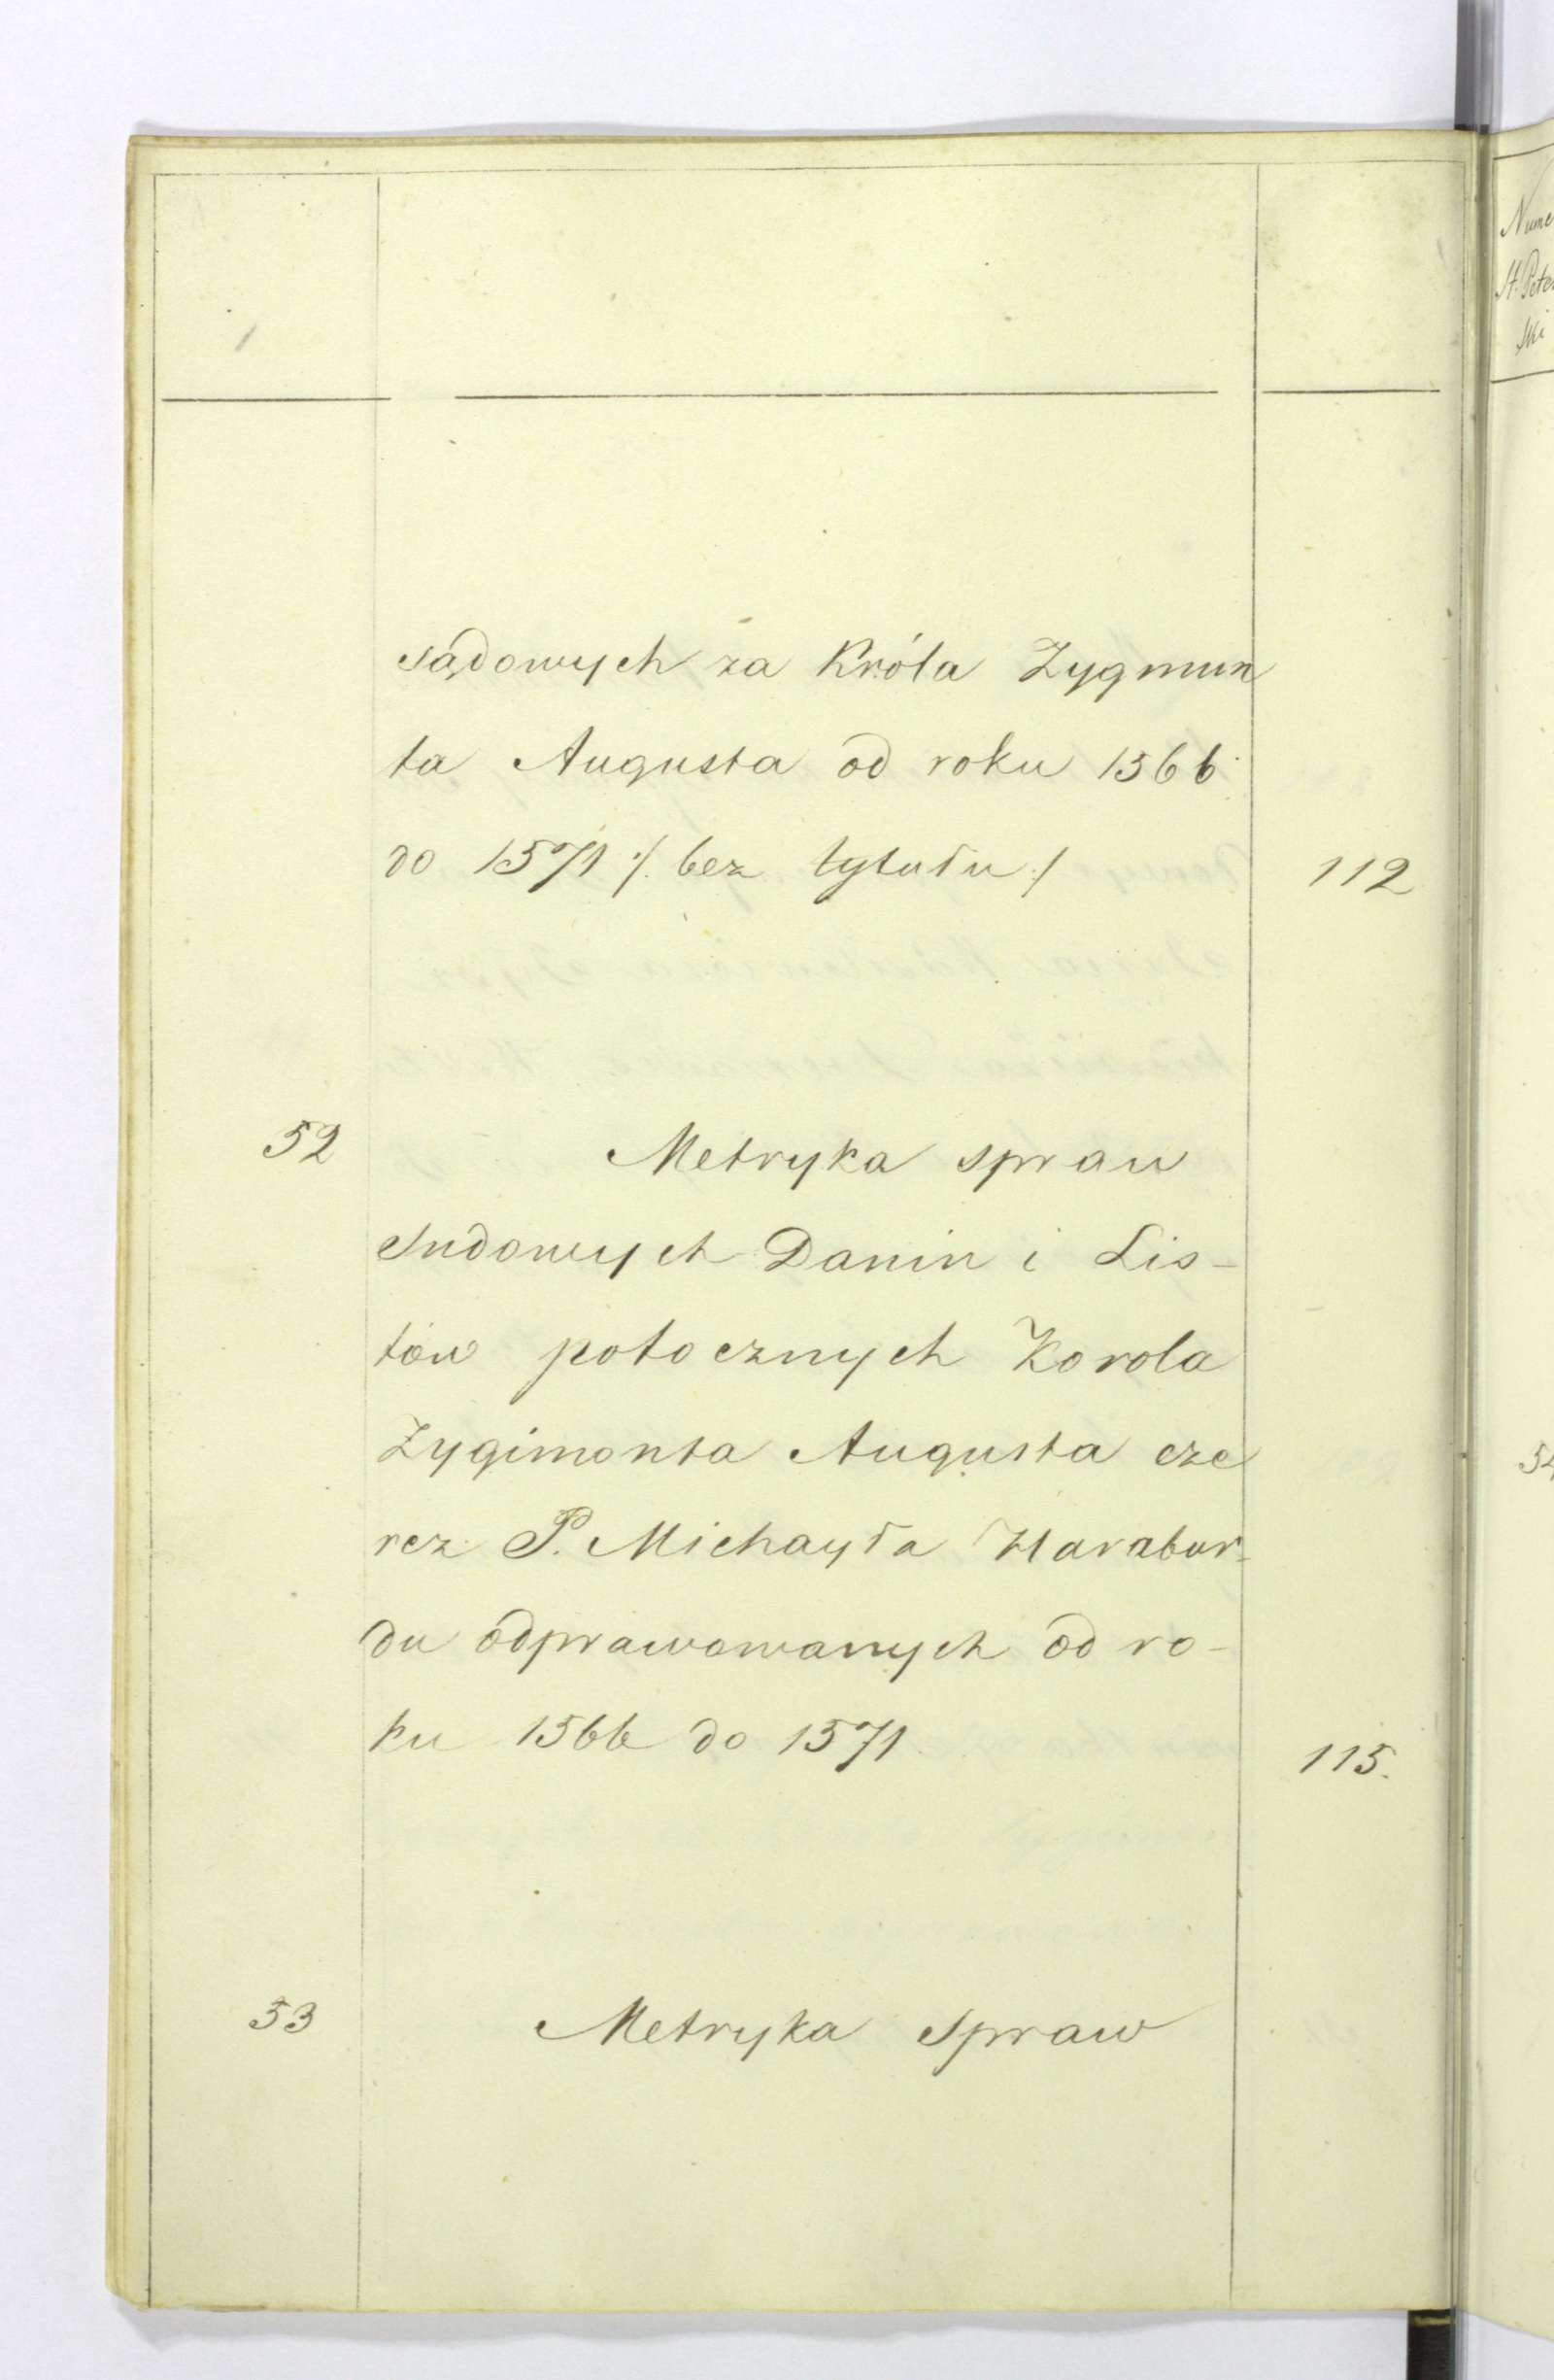 sądowych za Króla Zygmun
ta Augusta od roku 1566
do 1571 /. bez tytułu ./ 112
52 Metryka spraw
sudowych Danin i Lis-
tów potocznych Korola
Zygimonta Augusta cze
rez P. Michayła Harabur-
du odprawowanych od ro-
ku 1566 do 1571 115.
53 Metryka Spraw
Nume
St. Peter
ski
54